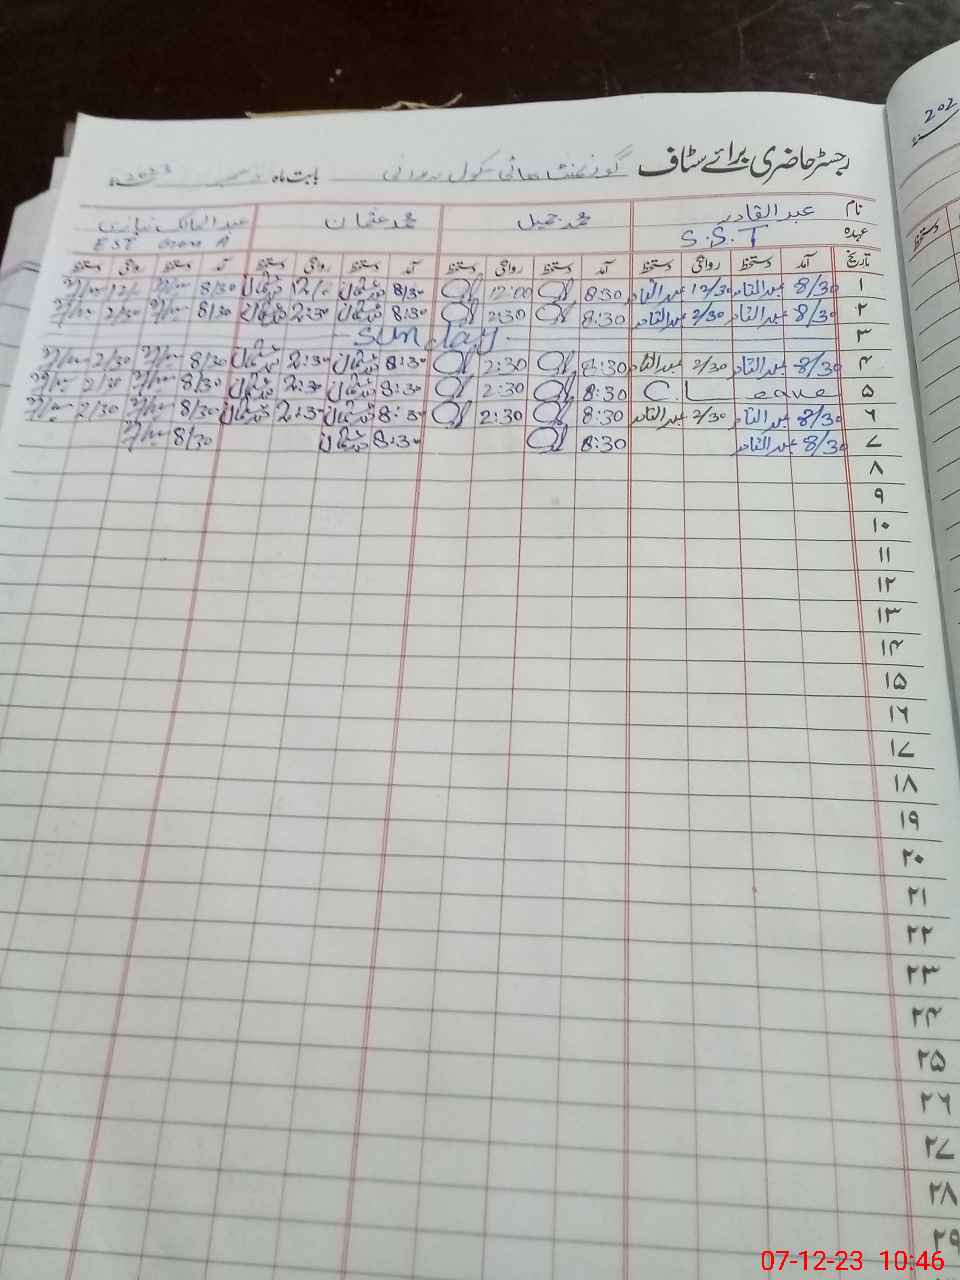 رجسٹر حاضری برائے سٹاف گورنمنٹ ہائی سکول بابت ماہ 2023ء
نام عبدالقادر محمد جمیل محمد عثمان عبدالمالک نیازی
عہدہ S.S.T EST
تاریخ آمد دستخط روانگی دستخط آمد دستخط روانگی دستخط آمد دستخط روانگی دستخط آمد دستخط روانگی دستخط
۱ 8/30 عبدالقادر 12/30 عبدالقادر 8:30 12:00 8:30 محمد عثمان محمد عثمان 8/30
۲ 8/30 عبدالقادر 2/30 عبدالقادر 8:30 2:30 8:30 محمد عثمان 2:30 محمد عثمان 8/30 2/30
۳ Sunday
۴ 8/30 عبدالقادر 2/30 عبدالقادر 8:30 2:30 8:30 محمد عثمان 2:30 محمد عثمان 8/30 2/30
۵ C. Leave 8:30 2:30 8:30 محمد عثمان 2:30 محمد عثمان 8/30 2/30
۶ 8/30 عبدالقادر 2/30 عبدالقادر 8:30 2:30 8:30 محمد عثمان 2:30 محمد عثمان 8/30 2/30
۷ 8/30 عبدالقادر 8:30 8:30 محمد عثمان 8/30
۸
۹
۱۰
۱۱
۱۲
۱۳
۱۴
۱۵
۱۶
۱۷
۱۸
۱۹
۲۰
۲۱
۲۲
۲۳
۲۴
۲۵
۲۶
۲۷
۲۸
۲۹
202
دستخط
07-12-23 10:46